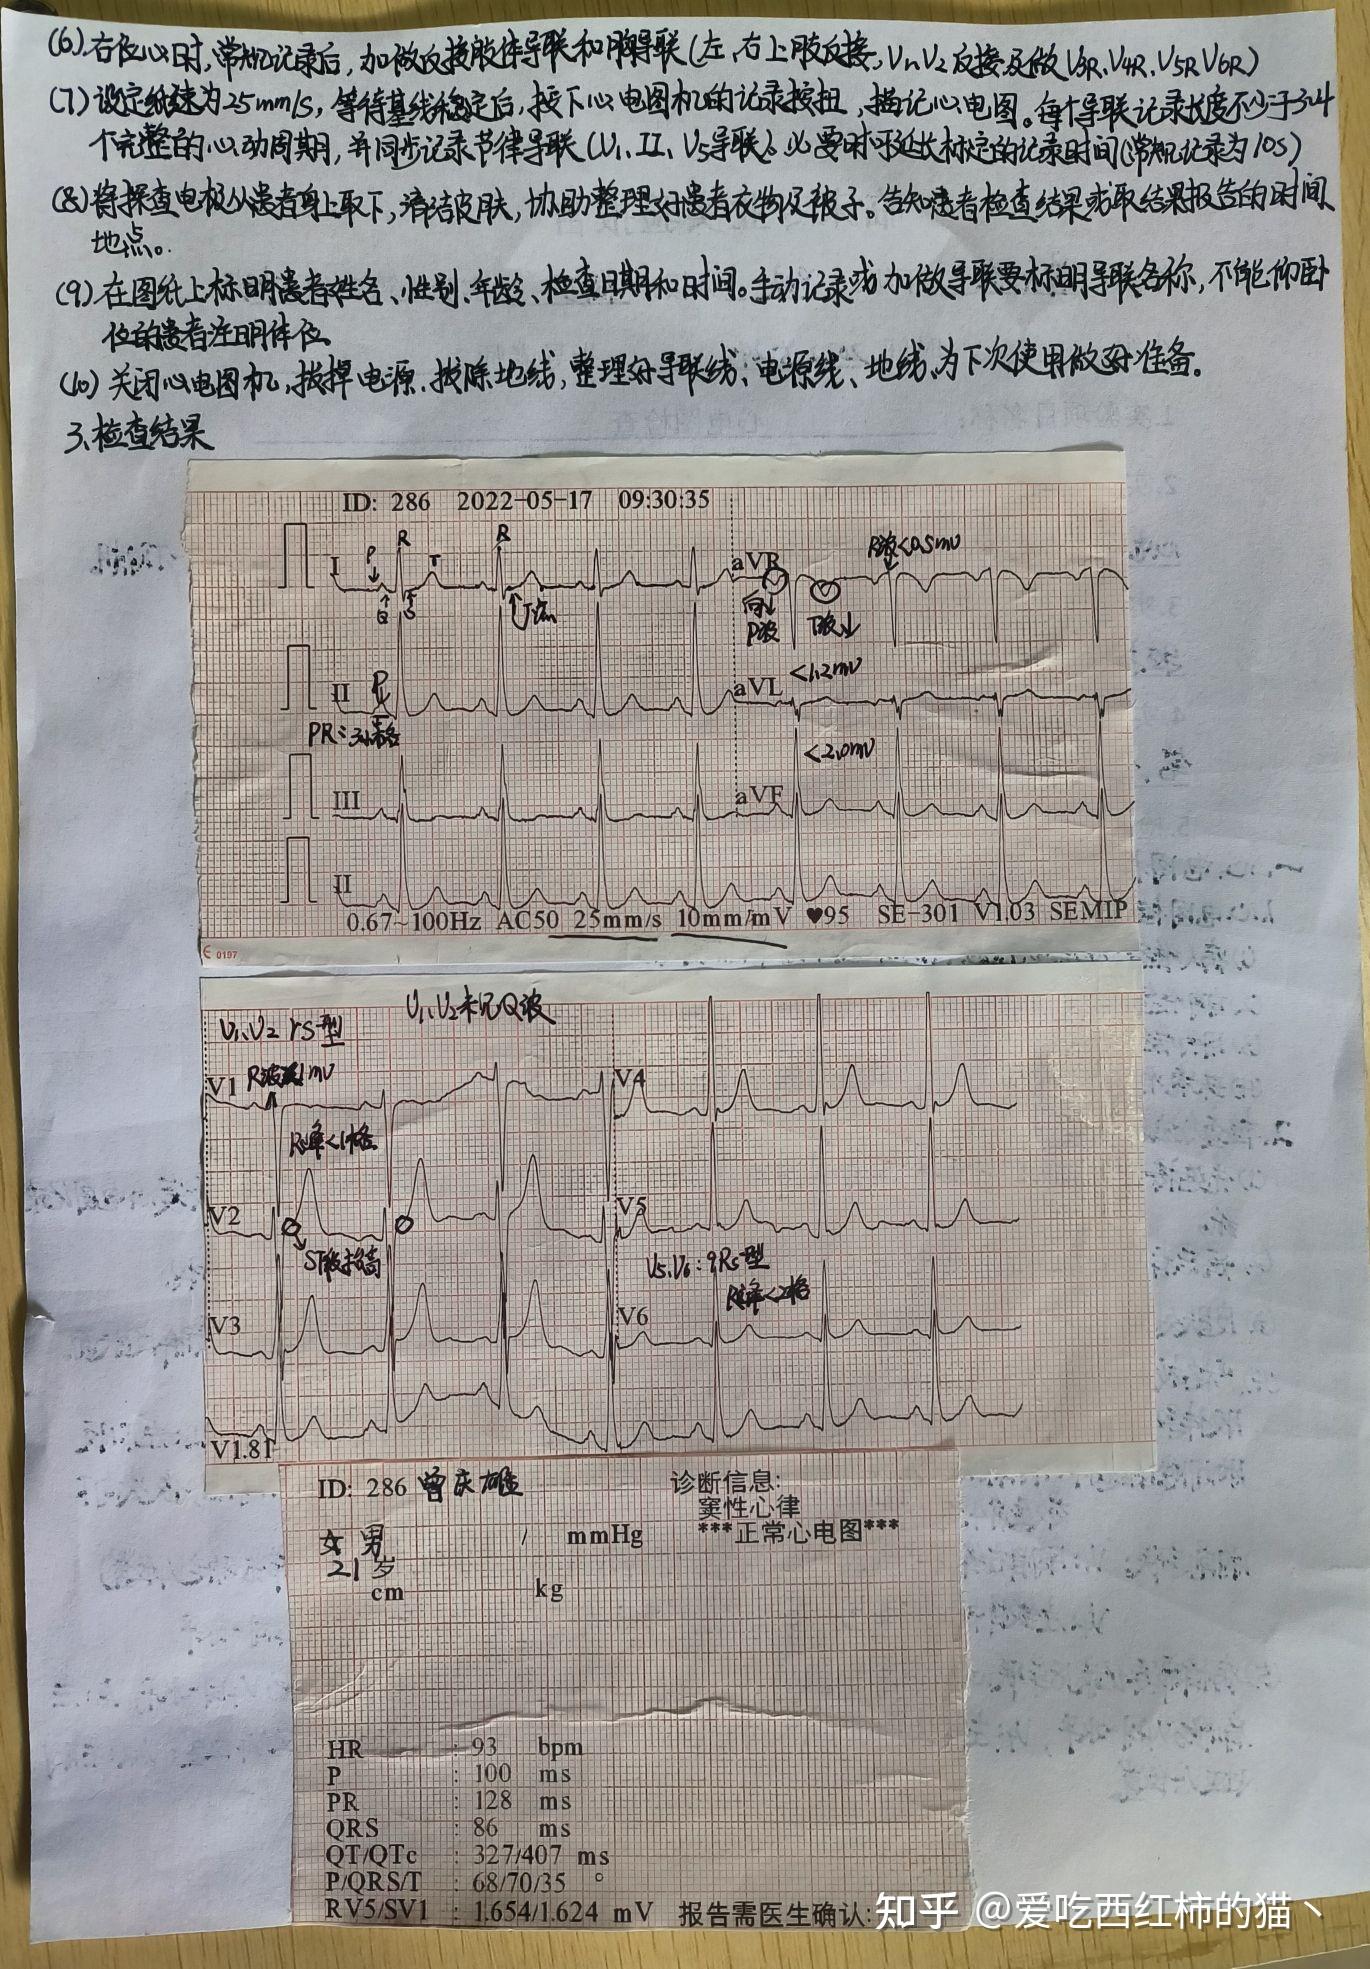 (6) 右位心时，常规记录后，加做反接肢体导联和胸导联(左、右上肢反接，V1、V2反接及做V3R、V4R、V5R、V6R)
(7) 设定纸速为25mm/s，等待基线稳定后，按下心电图机的记录按扭，描记心电图。每个导联记录长度不少于3~4
个完整的心动周期，并同步记录节律导联(V1、II、V5导联)。必要时可延长标定的记录时间(常规记录为10s)
(8) 将探查电极从患者身上取下，清洁皮肤，协助整理好患者衣物及被子。告知患者检查结果或取结果报告的时间、
地点。
(9) 在图纸上标明患者姓名、性别、年龄、检查日期和时间。手动记录或加做导联要标明导联名称，不能仰卧
位的患者注明体位
(10) 关闭心电图机，拔掉电源、拔除地线，整理好导联线、电源线、地线、为下次使用做好准备。
3、检查结果
ID: 286 2022-05-17 09:30:35
P R T R
I
Q S J点
aVR
R波<0.5mv
向↓
P波 T波↓
II
P
PR:3小格
aVL
<1.2mv
III
aVF
<2.0mv
II
0.67~100Hz AC50 25mm/s 10mm/mV ♥95 SE-301 V1.03 SEMIP
C€ 0197
V1、V2 rs型
V1、V2未见Q波
V1
1mv
R峰<1格
V4
V2
ST段抬高
V5
V5、V6: qRs型
R峰<2格
V3
V6
V1.81
ID: 286 曾庆雄
诊断信息:
窦性心律
***正常心电图***
女 男
/ mmHg
21岁
cm kg
HR : 93 bpm
P : 100 ms
PR : 128 ms
QRS : 86 ms
QT/QTc : 327/407 ms
P/QRS/T : 68/70/35 °
RV5/SV1 : 1.654/1.624 mV 报告需医生确认:
知乎 @爱吃西红柿的猫丶